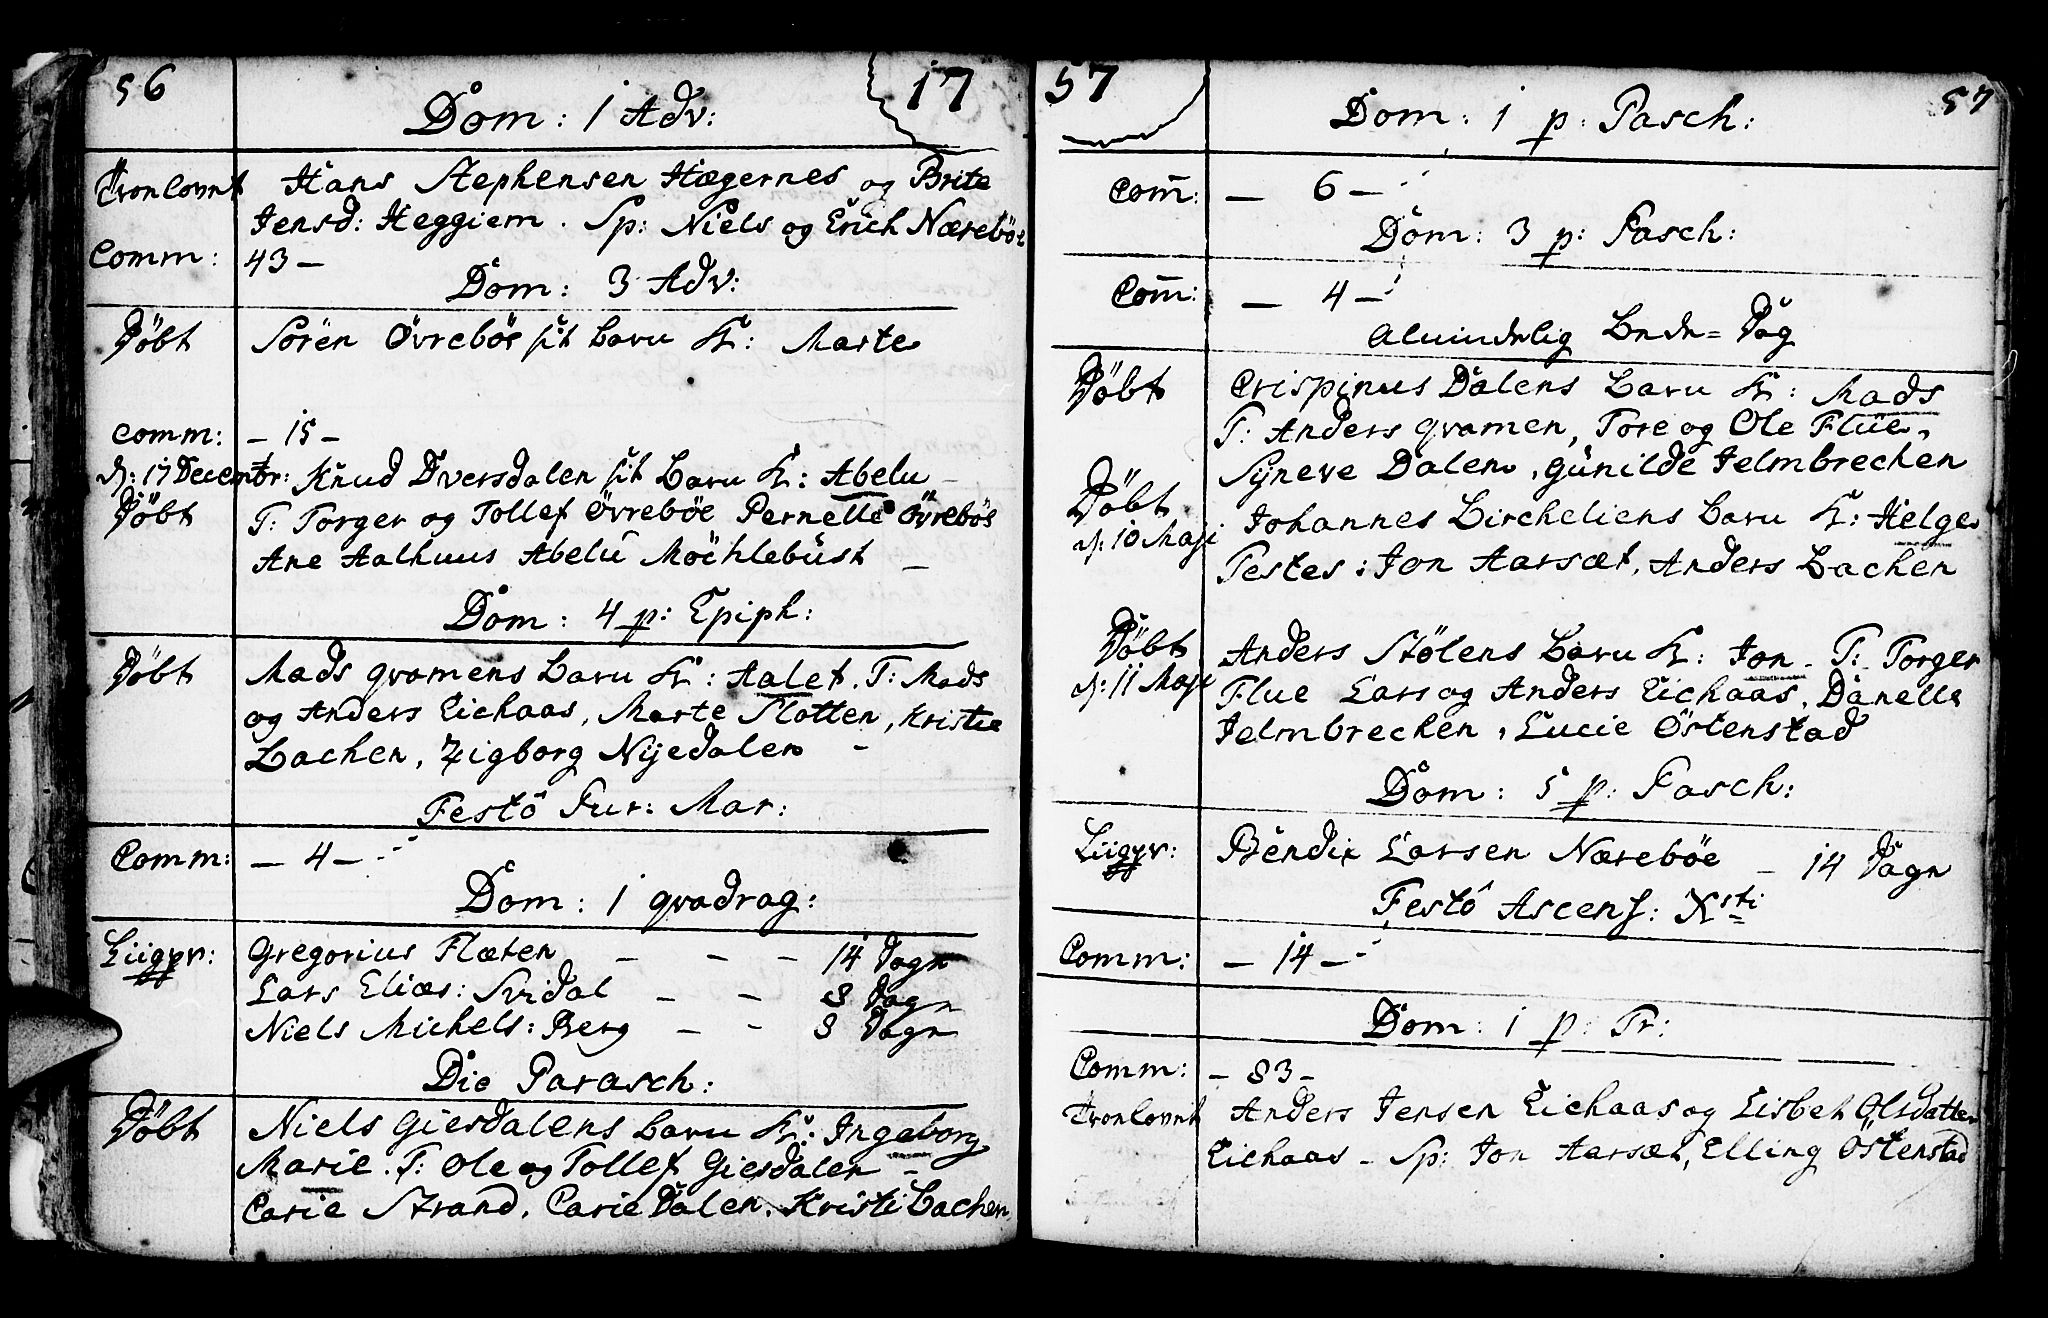 56
17
Dom: 1 Adv:
Trolovet Hans Stephensen Hægernes og Brite
Jensd: Heggiem. Sp: Niels og Erich Nærebøe
Comm: 43 –
Dom: 3 Adv:
Döbt Sören Övrebøe sit barn K: Marte
Comm: – 15 –
d: 17 Decembr: Knud Dversdalen sit Barn K: Abelu –
Döbt T: Torger og Tollef Övrebøe Pernelle Övrebøe
Ane Aalhuus Abelu Möchlebust –
Dom: 4 p: Epiph:
Döbt Mads qvamens Barn K: Aalet. T: Mads
og Anders Eichaas, Marte Slotten, Kristie
Bachen, Zigborg Nijedalen –
Festô Pur: Mar:
Comm: – 4 –
Dom: 1 qvadrag:
Liigpr: Gregorius Flæten – – – 14 Dage
Lars Elias: Svidal – – 8 Dage
Niels Michels: Berg – – 8 Dage
Die Parasch:
Döbt Niels Giesdalens barn K: Ingeborg
Marie. T: Ole og Tollef Giesdalen –
Carie Strand, Carie Dalen, Kristi Bachen
57
57
Dom: 1 p: Pasch:
Com̄: – 6 –
Dom: 3 p: Pasch:
Com̄: – 4 –
Almindelig Bede=Dag
Döbt Crispinus Dalens Barn K: Mads
T: Anders qvamen, Tore og Ole Flue,
Sÿneve Dalen, Gunilde Jelmbrechen
Döbt Johannes Bircheliens barn K: Helge
d: 10 Maji Testes: Jon Aarsæt, Anders Bachen
Döbt Anders Stölens Barn K: Jon – T: Torger
d: 11 Maji Flue Lars og Anders Eichaas, Danelle
Jelmbrechen, Lucie Östenstad
Dom: 5 p: Pasch:
Liigpr: Bendix Larsen Nærebøe – 14 Dage
Festô Ascens: Xsti
Comm: – 14 –
Dom: 1 p: Tr:
Comm: – 83 –
Trolovet Anders Jensen Eichaas og Lisbet Olsdatter
Eichaas – Sp: Jon Aarsæt, Elling Östenstad